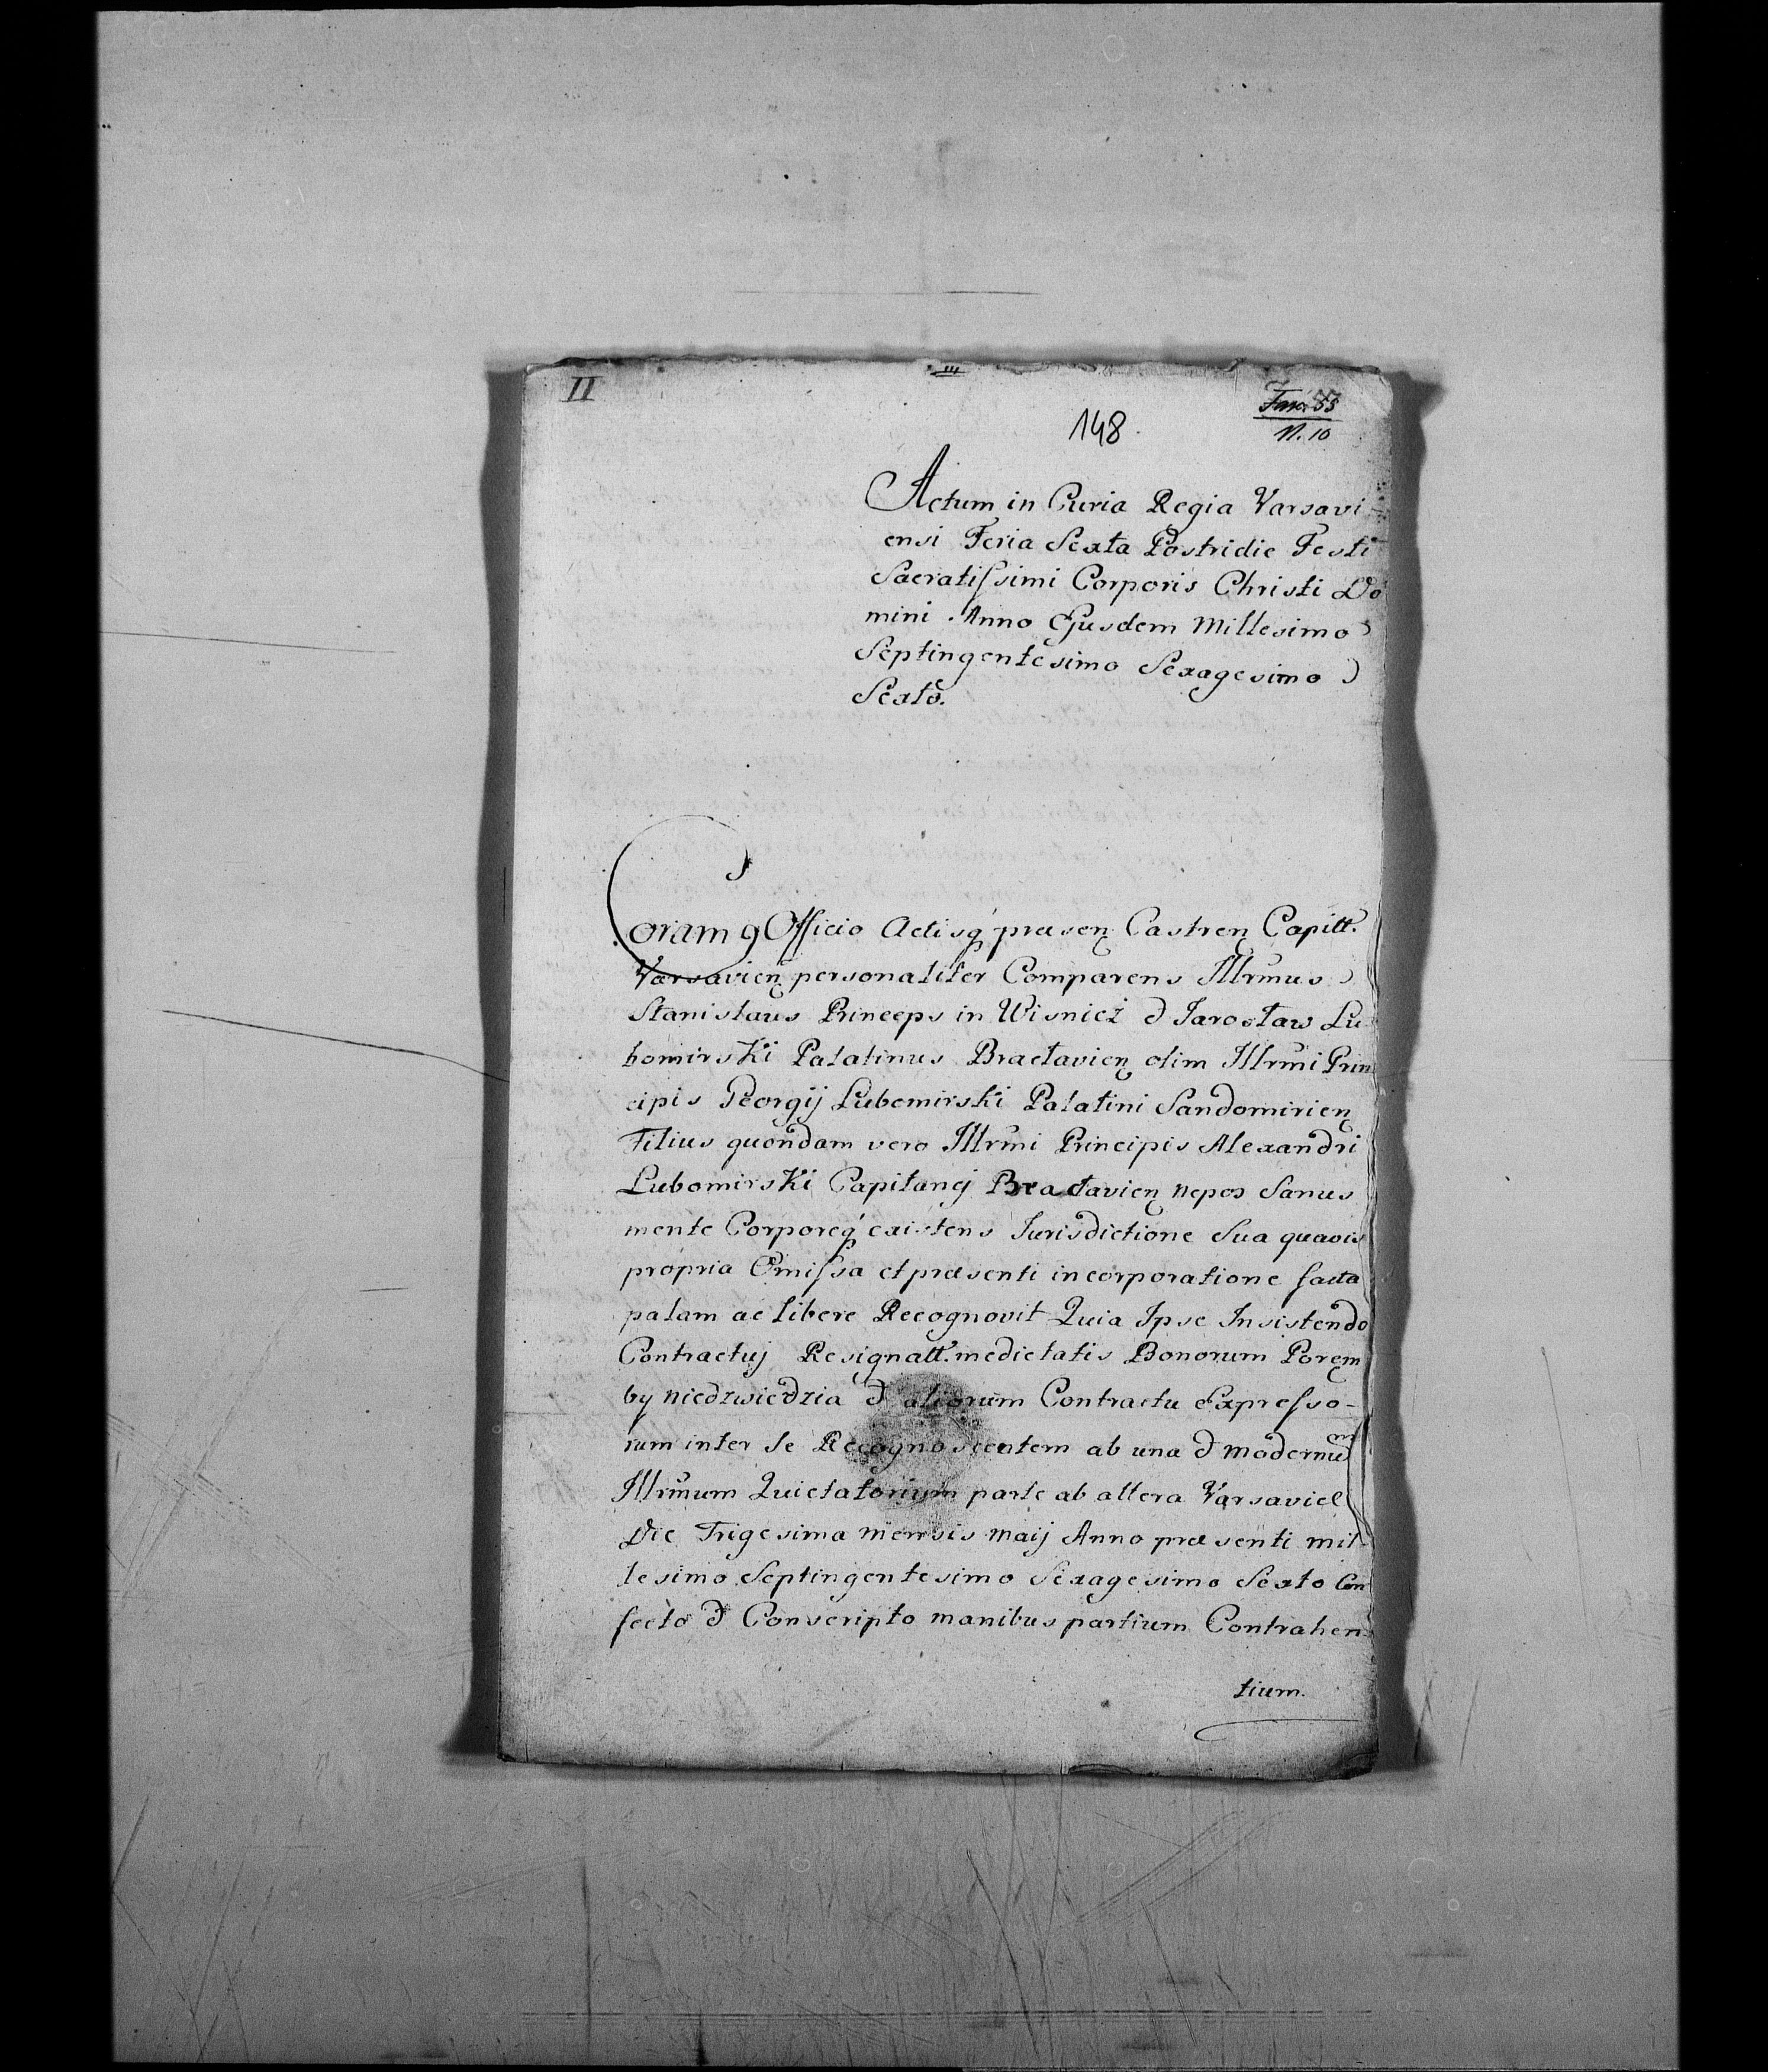 II
148.
Fasc. 53
N. 10
Actum in Curia Regia Varsavi-
ensi Feria Sexta Postridie Festi
Sacratissimi Corporis Christi Do
mini Anno Ejusdem Millesimo
Septingentesimo Sexagesimo
Sexto.
Coram Officio Actisq́ præsen Castren Capitt.
Varsavien personaliter Comparens Illrmus
Stanislaus Princeps in Wisnicz & Jarosław Lu-
bomirski Palatinus Bracłavien olim Illrmi Prin
cipis Georgij Lubomirski Palatini Sandomirien
Filius quondam vero Illrmi Principis Alexandri
Lubomirski Capitanej Bracłavien Nepos Sanus
mente Corporeq́ existens Jurisdictione Sua quavis
propria Omissa et præsenti incorporatione facta
palam ac libere Recognovit Quia Ipse Insistendo
Contractuj Resignatt. medietatis Bonorum Porem
by Niedzwiedzia & aliorum Contractu Expresso-
rum inter se Recognoscentem ab una & modernum
Illrmum Quietatorium parte ab altera Varsaviæ
Die Trigesima mensis Maij Anno præsenti mil-
lesimo Septingentesimo Sexagesimo Sexto Con
fecto & Conscripto manibus partium Contrahen-
tium.